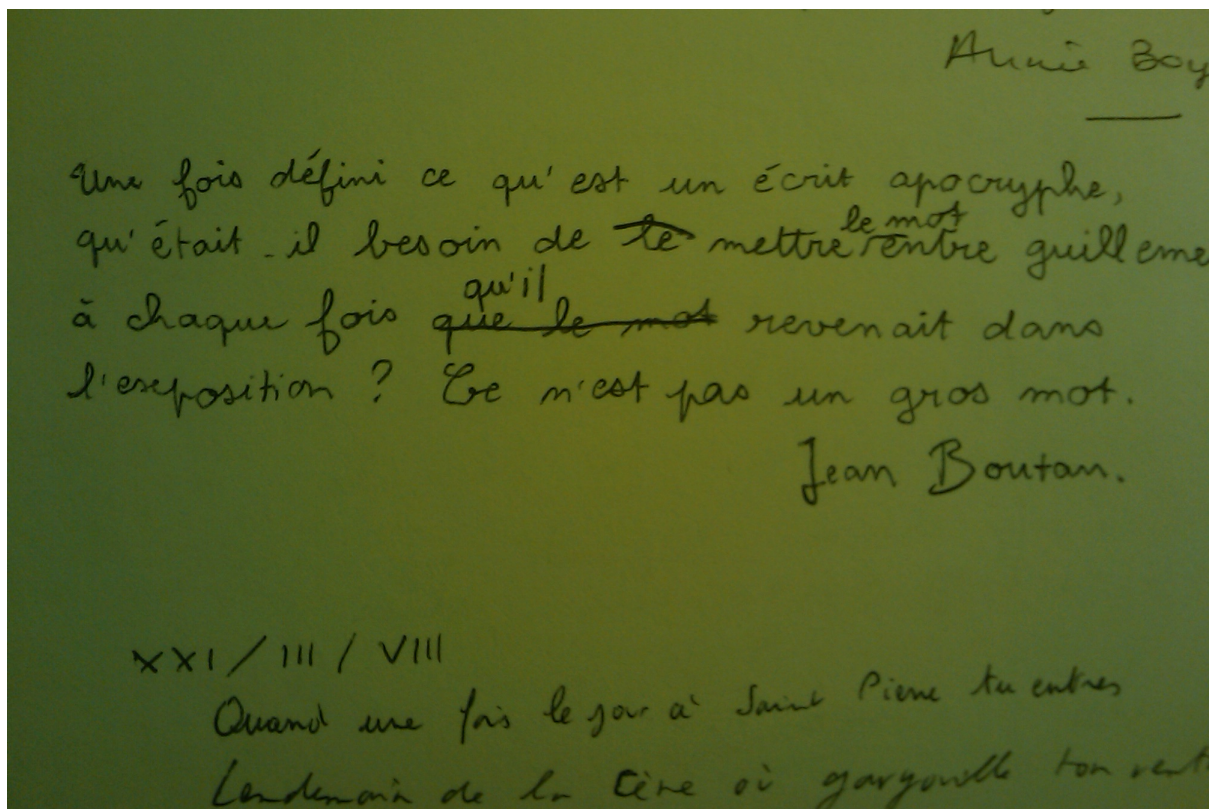 Annie Boy
Une fois défini ce qu'est un écrit apocryphe,
le mot
qu'était-il besoin de le mettre entre guilleme
qu'il
à chaque fois que le mot revenait dans
l'exposition ? Ce n'est pas un gros mot.
Jean Boutan.
XXI / III / VIII
Quand une fois le jour à Saint Pierre tu entres
Lendemain de la Cène où gargouille ton vent